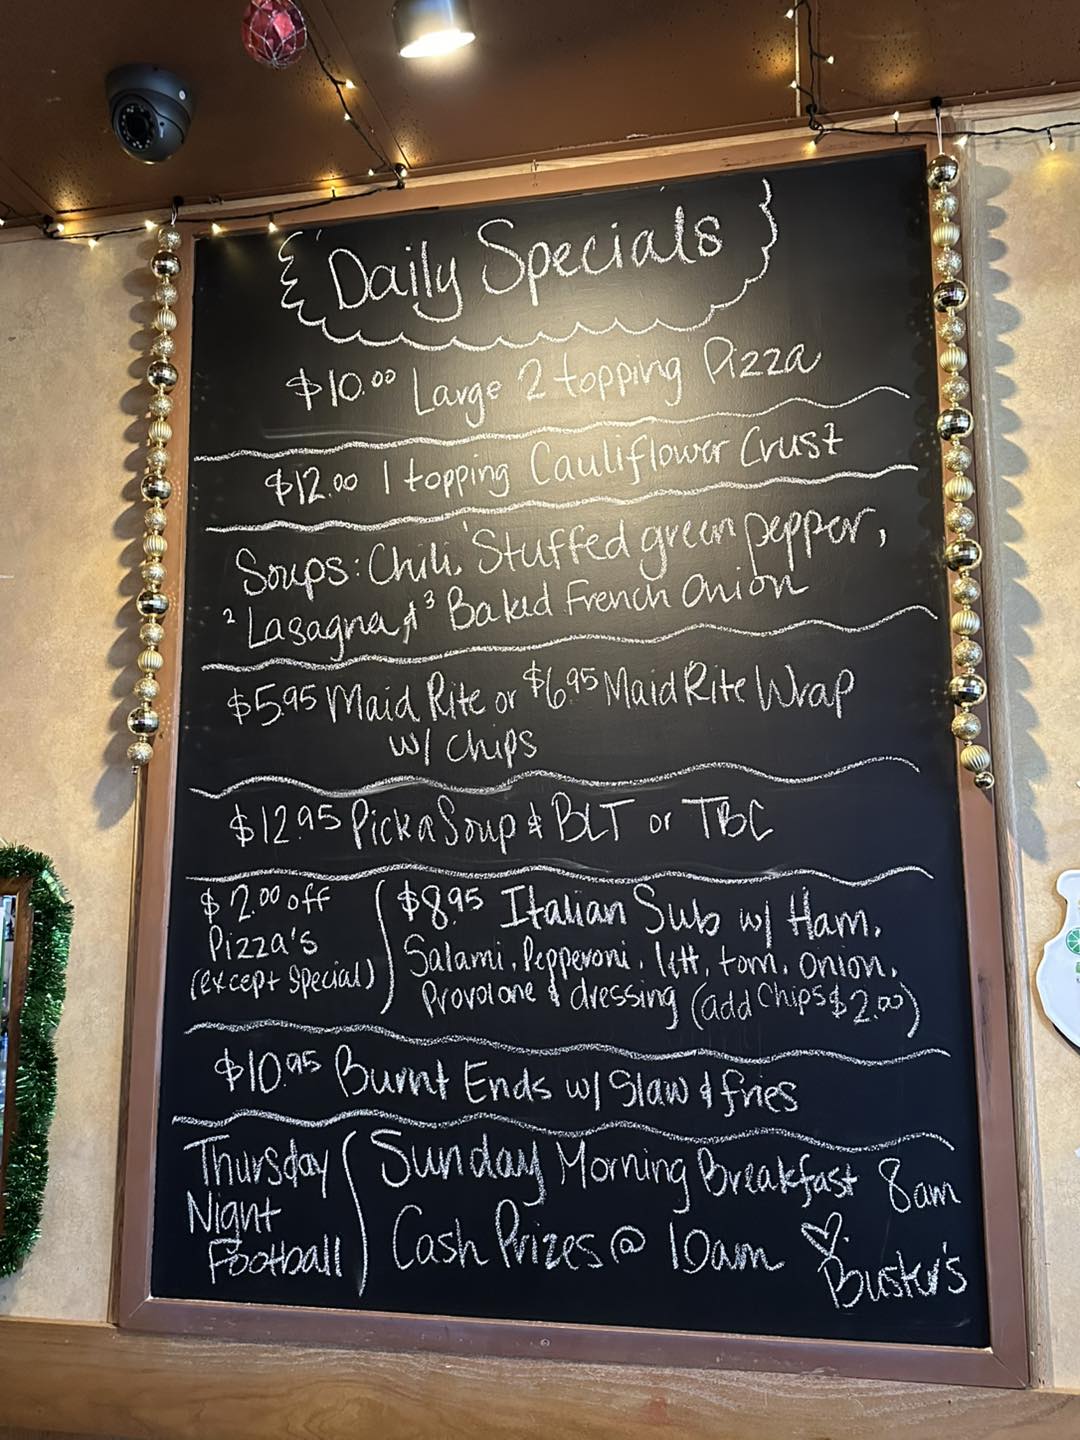 Daily Specials
$10.00 Large 2 topping Pizza
$12.00 1 topping Cauliflower Crust
Soups: Chili, 1 Stuffed green pepper,
2 Lasagna, & 3 Baked French Onion
$5.95 Maid Rite or $6.95 Maid Rite Wrap
w/ chips
$12.95 Pick a Soup & BLT or TBC
$2.00 off
Pizza's
(except Special)
$8.95 Italian Sub w/ Ham,
Salami, Pepperoni, lett, tom, onion,
Provolone & dressing (add Chips $2.00)
$10.95 Burnt Ends w/ Slaw & fries
Thursday
Night
Football
Sunday Morning Breakfast 8am
Cash Prizes @ 10am
Buster's